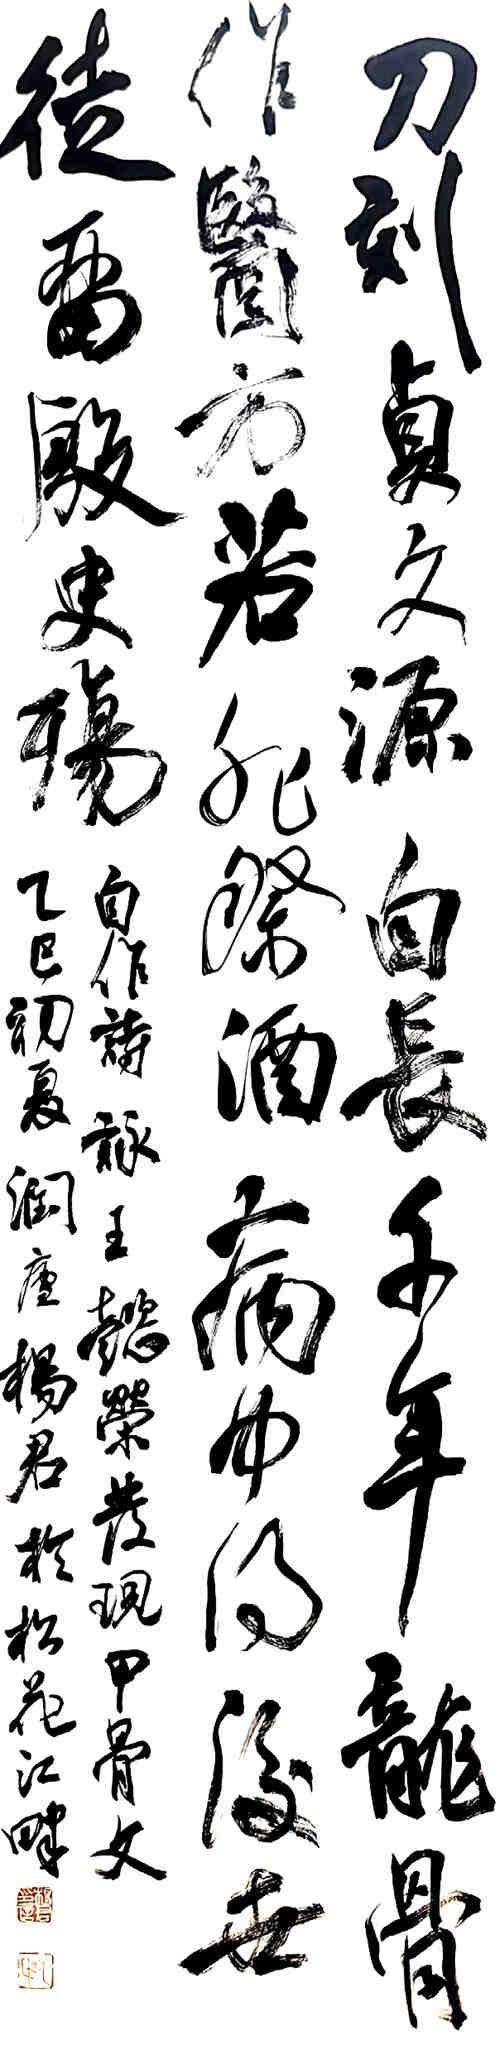 刀刻貞文源自長千年龍骨
作醫方若非祭酒病中得後世
徒留殷史殤
自作詩詠王懿榮發現甲骨文
乙巳初夏潤廬楊君於松花江畔